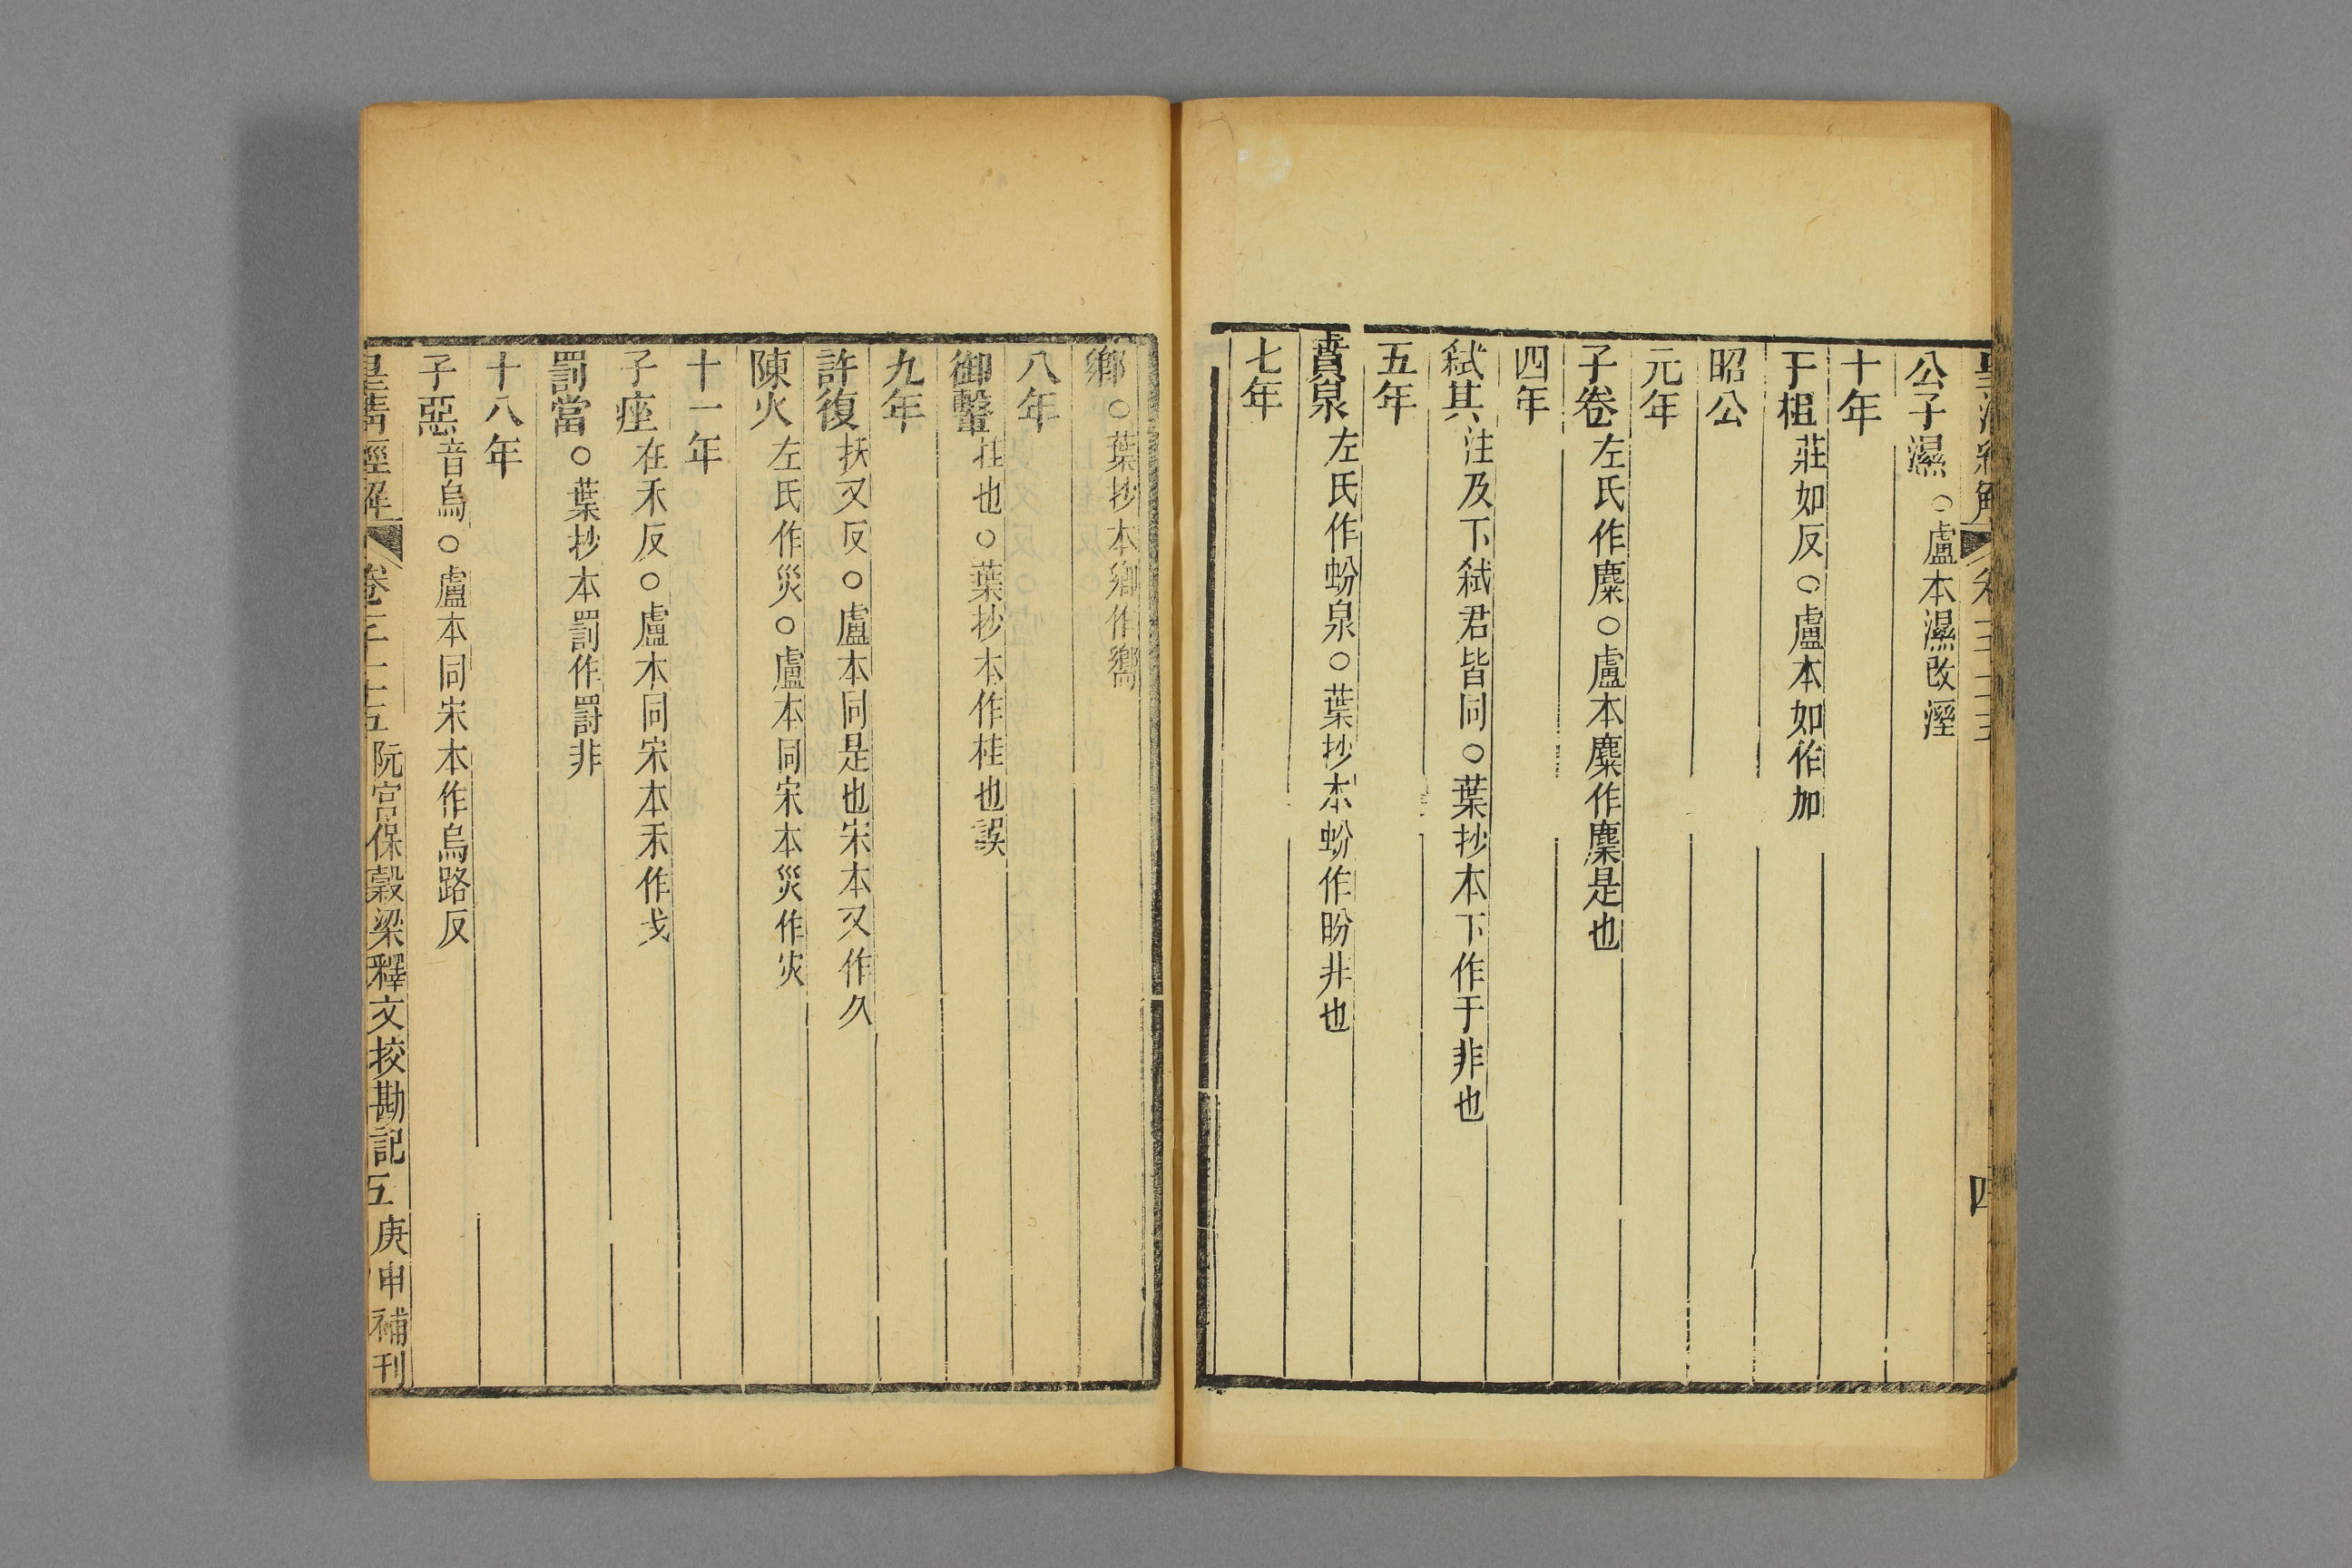 公子濕○盧本濕改溼
十年
于柤莊如反○盧本如作加
昭公
元年
子卷左氏作麋○盧本麋作麇是也
四年
弑其注及下弑君皆同○葉抄本下作于非也
五年
賁泉左氏作蚡泉○葉抄本蚡作盼非也
七年
鄉○葉抄本鄉作嚮
八年
御𣪠挂也○葉抄本作桂也誤
九年
許復扶又反○盧本同是也宋本又作久
陳火左氏作災○盧本同宋本災作灾
十一年
子痤在禾反○盧本同宋本禾作戈
罰當○葉抄本罰作罸非
十八年
子惡音烏○盧本同宋本作烏路反
皇清經解 卷 阮宮保穀梁釋文挍勘記五 庚申補刊